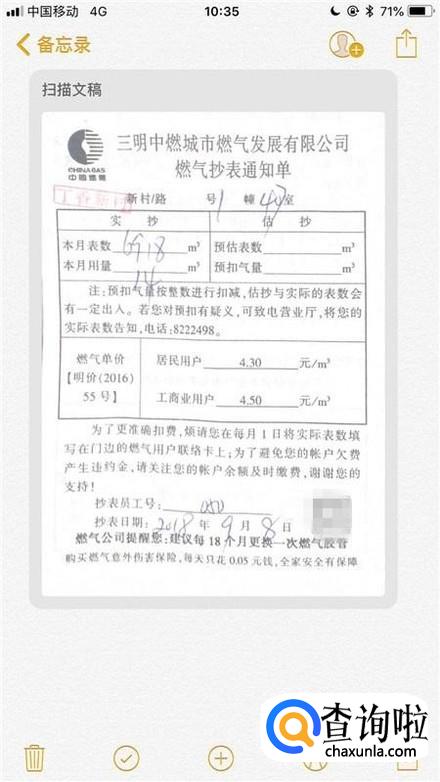 中国移动 4G 10:35 71%
备忘录
扫描文稿
CHINA GAS
中国燃气
三明中燃城市燃气发展有限公司
燃气抄表通知单
新村/路 号 1 幢 室
实 抄 估 抄
本月表数 6918 m³ 预估表数 m³
本月用量 14 m³ 预扣气量 m³
注:预扣气量按整数进行扣减,估抄与实际的表数会
有一定出入。若您对预扣有疑义,可致电营业厅,将您的
实际表数告知,电话:8222498。
燃气单价
【明价(2016)
55 号】
居民用户 4.30 元/m³
工商业用户 4.50 元/m³
为了更准确扣费,烦请您在每月1日将实际表数填
写在门边的燃气用户联络卡上;为了避免您的帐户欠费
产生违约金,请关注您的帐户余额及时缴费,谢谢您的
支持!
抄表员工号: 050
抄表日期: 2018 年 9 月 8 日
燃气公司提醒您:建议每 18 个月更换一次燃气胶管
购买燃气意外伤害保险,每天只花 0.05 元钱,全家安全有保障
查询啦
chaxunla.com